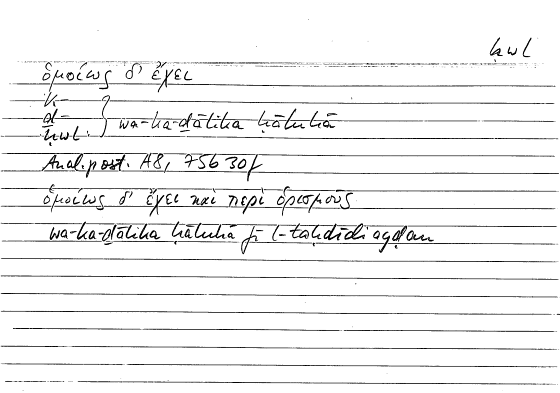 ḥwl
ὁμοίως δ' ἔχει
k-
ḏ-
ḥwl. } wa-ka-ḏālika ḥāluhā
Anal. post. A8, 75b30f
ὁμοίως δ' ἔχει καὶ περὶ ὁρισμούς
wa-ka-ḏālika ḥāluhā fī l-taḥdīdi ayḍan